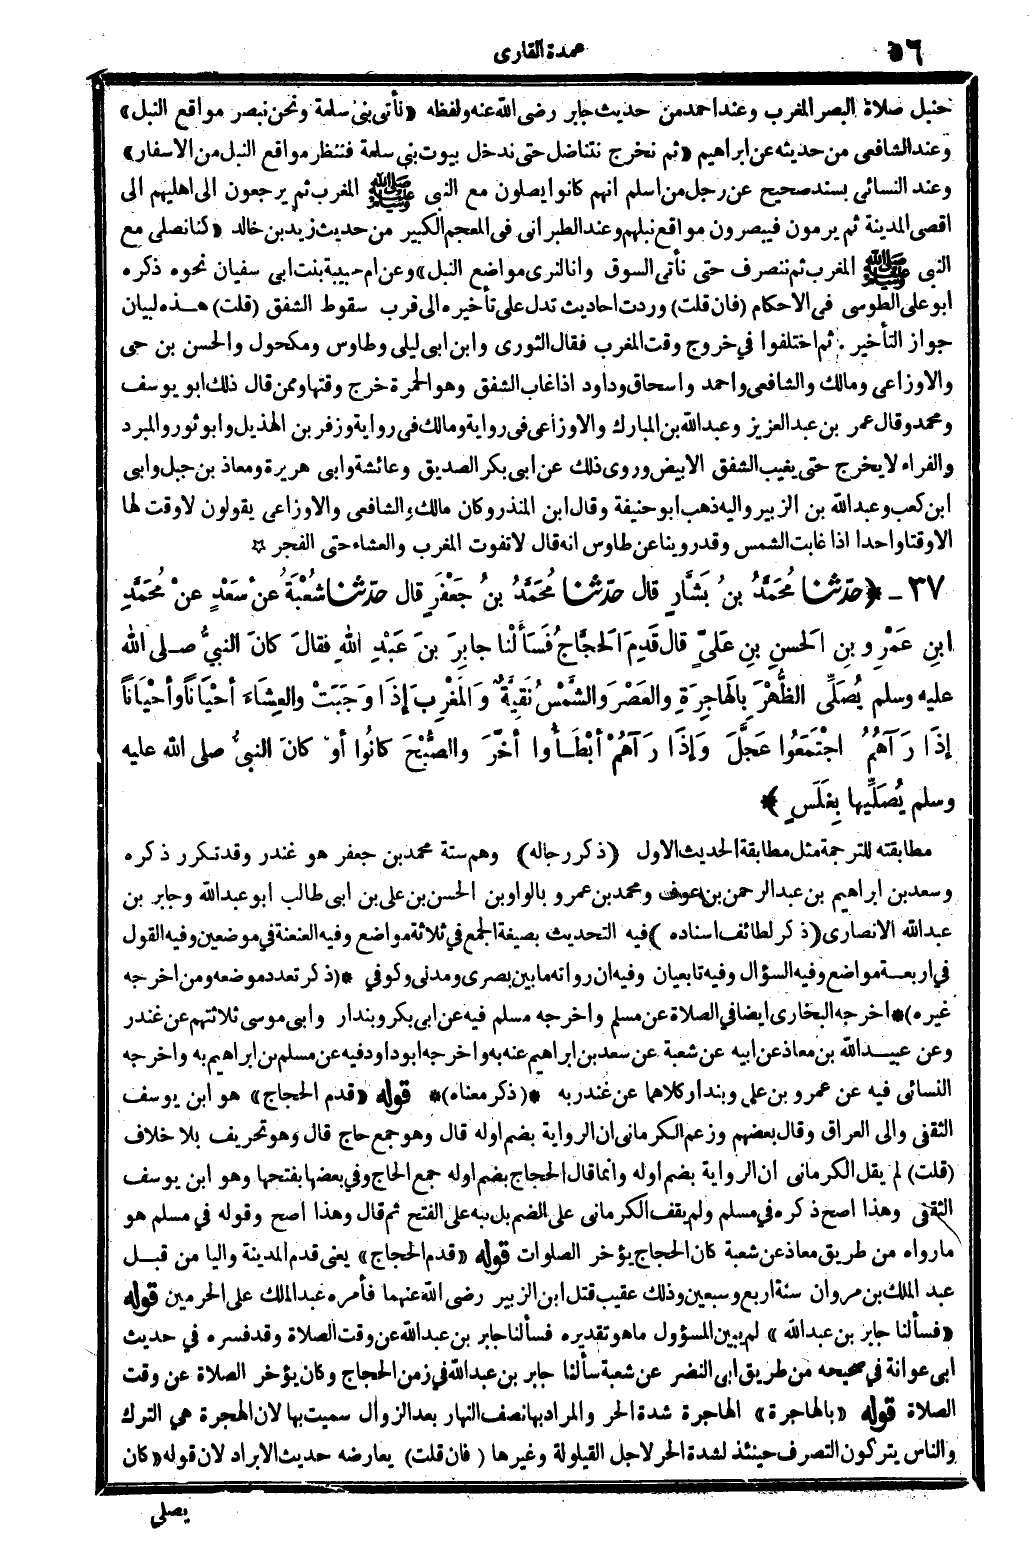 ٥٦
عمدة القارى
حنبل صلاة البصر المغرب وعند احمد من حديث جابر رضى الله عنه ولفظه «نأتى بنى سلمة ونحن نبصر مواقع النبل»
وعند الشافعى من حديثه عن ابراهيم «ثم نخرج نتناضل حتى ندخل بيوت بنى سلمة فننظر مواقع النبل من الاسفار»
وعند النسائى بسند صحيح عن رجل من اسلم انهم كانوا يصلون مع النبى ﷺ المغرب ثم يرجعون الى اهليهم الى
اقصى المدينة ثم يرمون فيبصرون مواقع نبلهم وعند الطبرانى فى المعجم الكبير من حديث زيد بن خالد «كنا نصلى مع
النبى ﷺ المغرب ثم ننصرف حتى نأتى السوق وانا لنرى مواضع النبل» وعن ام حبيبة بنت ابى سفيان نحوه ذكره
ابو على الطوسى فى الاحكام (فان قلت) وردت احاديث تدل على تأخيره الى قرب سقوط الشفق (قلت) هذه لبيان
جواز التأخير . ثم اختلفوا في خروج وقت المغرب فقال الثورى وابن ابى ليلى وطاوس ومكحول والحسن بن حى
والاوزاعى ومالك والشافعى واحمد واسحاق وداود اذا غاب الشفق وهو الحمرة خرج وقتها وممن قال ذلك ابو يوسف
ومحمد وقال عمر بن عبد العزيز وعبد الله بن المبارك والاوزاعى فى رواية ومالك فى رواية وزفر بن الهذيل وابو ثور والمبرد
والفراء لا يخرج حتى يغيب الشفق الابيض وروى ذلك عن ابى بكر الصديق وعائشة وابى هريرة ومعاذ بن جبل وابى
ابن كعب وعبد الله بن الزبير واليه ذهب ابو حنيفة وقال ابن المنذر وكان مالك والشافعى والاوزاعى يقولون لا وقت لها
الا وقتا واحدا اذا غابت الشمس وقد روينا عن طاوس انه قال لا تفوت المغرب والعشاء حتى الفجر ☆
٣٧ ـ ﴿حدّثنا مُحَمَّدُ بنُ بَشَّارٍ قال حدّثنا مُحَمَّدُ بنُ جَعْفَرٍ قال حدّثنا شُعْبَةُ عنْ سَعْدٍ عنْ مُحَمَّدِ
ابنِ عَمْرِو بنِ الحَسنِ بنِ عَليٍّ قال قَدِمَ الحَجَّاجُ فَسَأَلْنا جابِرَ بنَ عَبْدِ اللهِ فقالَ كانَ النبيُّ صلى الله
عليه وسلم يُصَلِّى الظُّهْرَ بِالهاجِرَةِ والعَصْرَ والشَّمْسُ نَقِيَّةٌ والمَغْرِبَ إذَا وجَبَتْ والعِشَاءَ أحْيَاناً وأحْيَاناً
إذَا رَآهُمُ اجْتَمَعُوا عَجَّلَ وَإذَا رَآهُمْ أبْطَأُوا أخَّرَ والصُّبْحَ كانُوا أوْ كانَ النبيُّ صلى الله عليه
وسلم يُصَلِّيها بِغَلَسٍ﴾
مطابقته للترجمة مثل مطابقة الحديث الاول (ذكر رجاله) وهم ستة محمد بن جعفر هو غندر وقد تكرر ذكره
وسعد بن ابراهيم بن عبد الرحمن بن عوف ومحمد بن عمرو بالواو بن الحسن بن على بن ابى طالب ابو عبد الله وجابر بن
عبد الله الانصارى (ذكر لطائف اسناده) فيه التحديث بصيغة الجمع في ثلاثة مواضع وفيه العنعنة في موضعين وفيه القول
في اربعة مواضع وفيه السؤال وفيه تابعيان وفيه ان رواته ما بين بصرى ومدنى وكوفي *(ذكر تعدد موضعه ومن اخرجه
غيره)* اخرجه البخارى ايضا في الصلاة عن مسلم واخرجه مسلم فيه عن ابى بكر وبندار وابى موسى ثلاثتهم عن غندر
وعن عبيد الله بن معاذ عن ابيه عن شعبة عن سعد بن ابراهيم عنه به واخرجه ابو داود فيه عن مسلم بن ابراهيم به واخرجه
النسائى فيه عن عمرو بن على وبندار كلاهما عن غندر به *(ذكر معناه)* قوله «قدم الحجاج» هو ابن يوسف
الثقفى والى العراق وقال بعضهم وزعم الكرمانى ان الرواية بضم اوله قال وهو جمع حاج قال وهو تحريف بلا خلاف
(قلت) لم يقل الكرمانى ان الرواية بضم اوله وانما قال الحجاج بضم اوله جمع الحاج وفي بعضها بفتحها وهو ابن يوسف
الثقفى وهذا اصح ذكره في مسلم ولم يقف الكرمانى على الضم بل نبه على الفتح ثم قال وهذا اصح وقوله في مسلم هو
ما رواه من طريق معاذ عن شعبة كان الحجاج يؤخر الصلوات قوله «قدم الحجاج» يعنى قدم المدينة واليا من قبل
عبد الملك بن مروان سنة اربع وسبعين وذلك عقيب قتل ابن الزبير رضى الله عنهما فأمره عبد الملك على الحرمين قوله
«فسألنا جابر بن عبد الله» لم يبين المسؤول ما هو تقديره فسألنا جابر بن عبد الله عن وقت الصلاة وقد فسره في حديث
ابى عوانة في صحيحه من طريق ابى النضر عن شعبة سألنا جابر بن عبد الله في زمن الحجاج وكان يؤخر الصلاة عن وقت
الصلاة قوله «بالهاجرة» الهاجرة شدة الحر والمراد بها نصف النهار بعد الزوال سميت بها لان الهجرة هي الترك
والناس يتركون التصرف حينئذ لشدة الحر لاجل القيلولة وغيرها (فان قلت) يعارضه حديث الابراد لان قوله «كان
يصلى